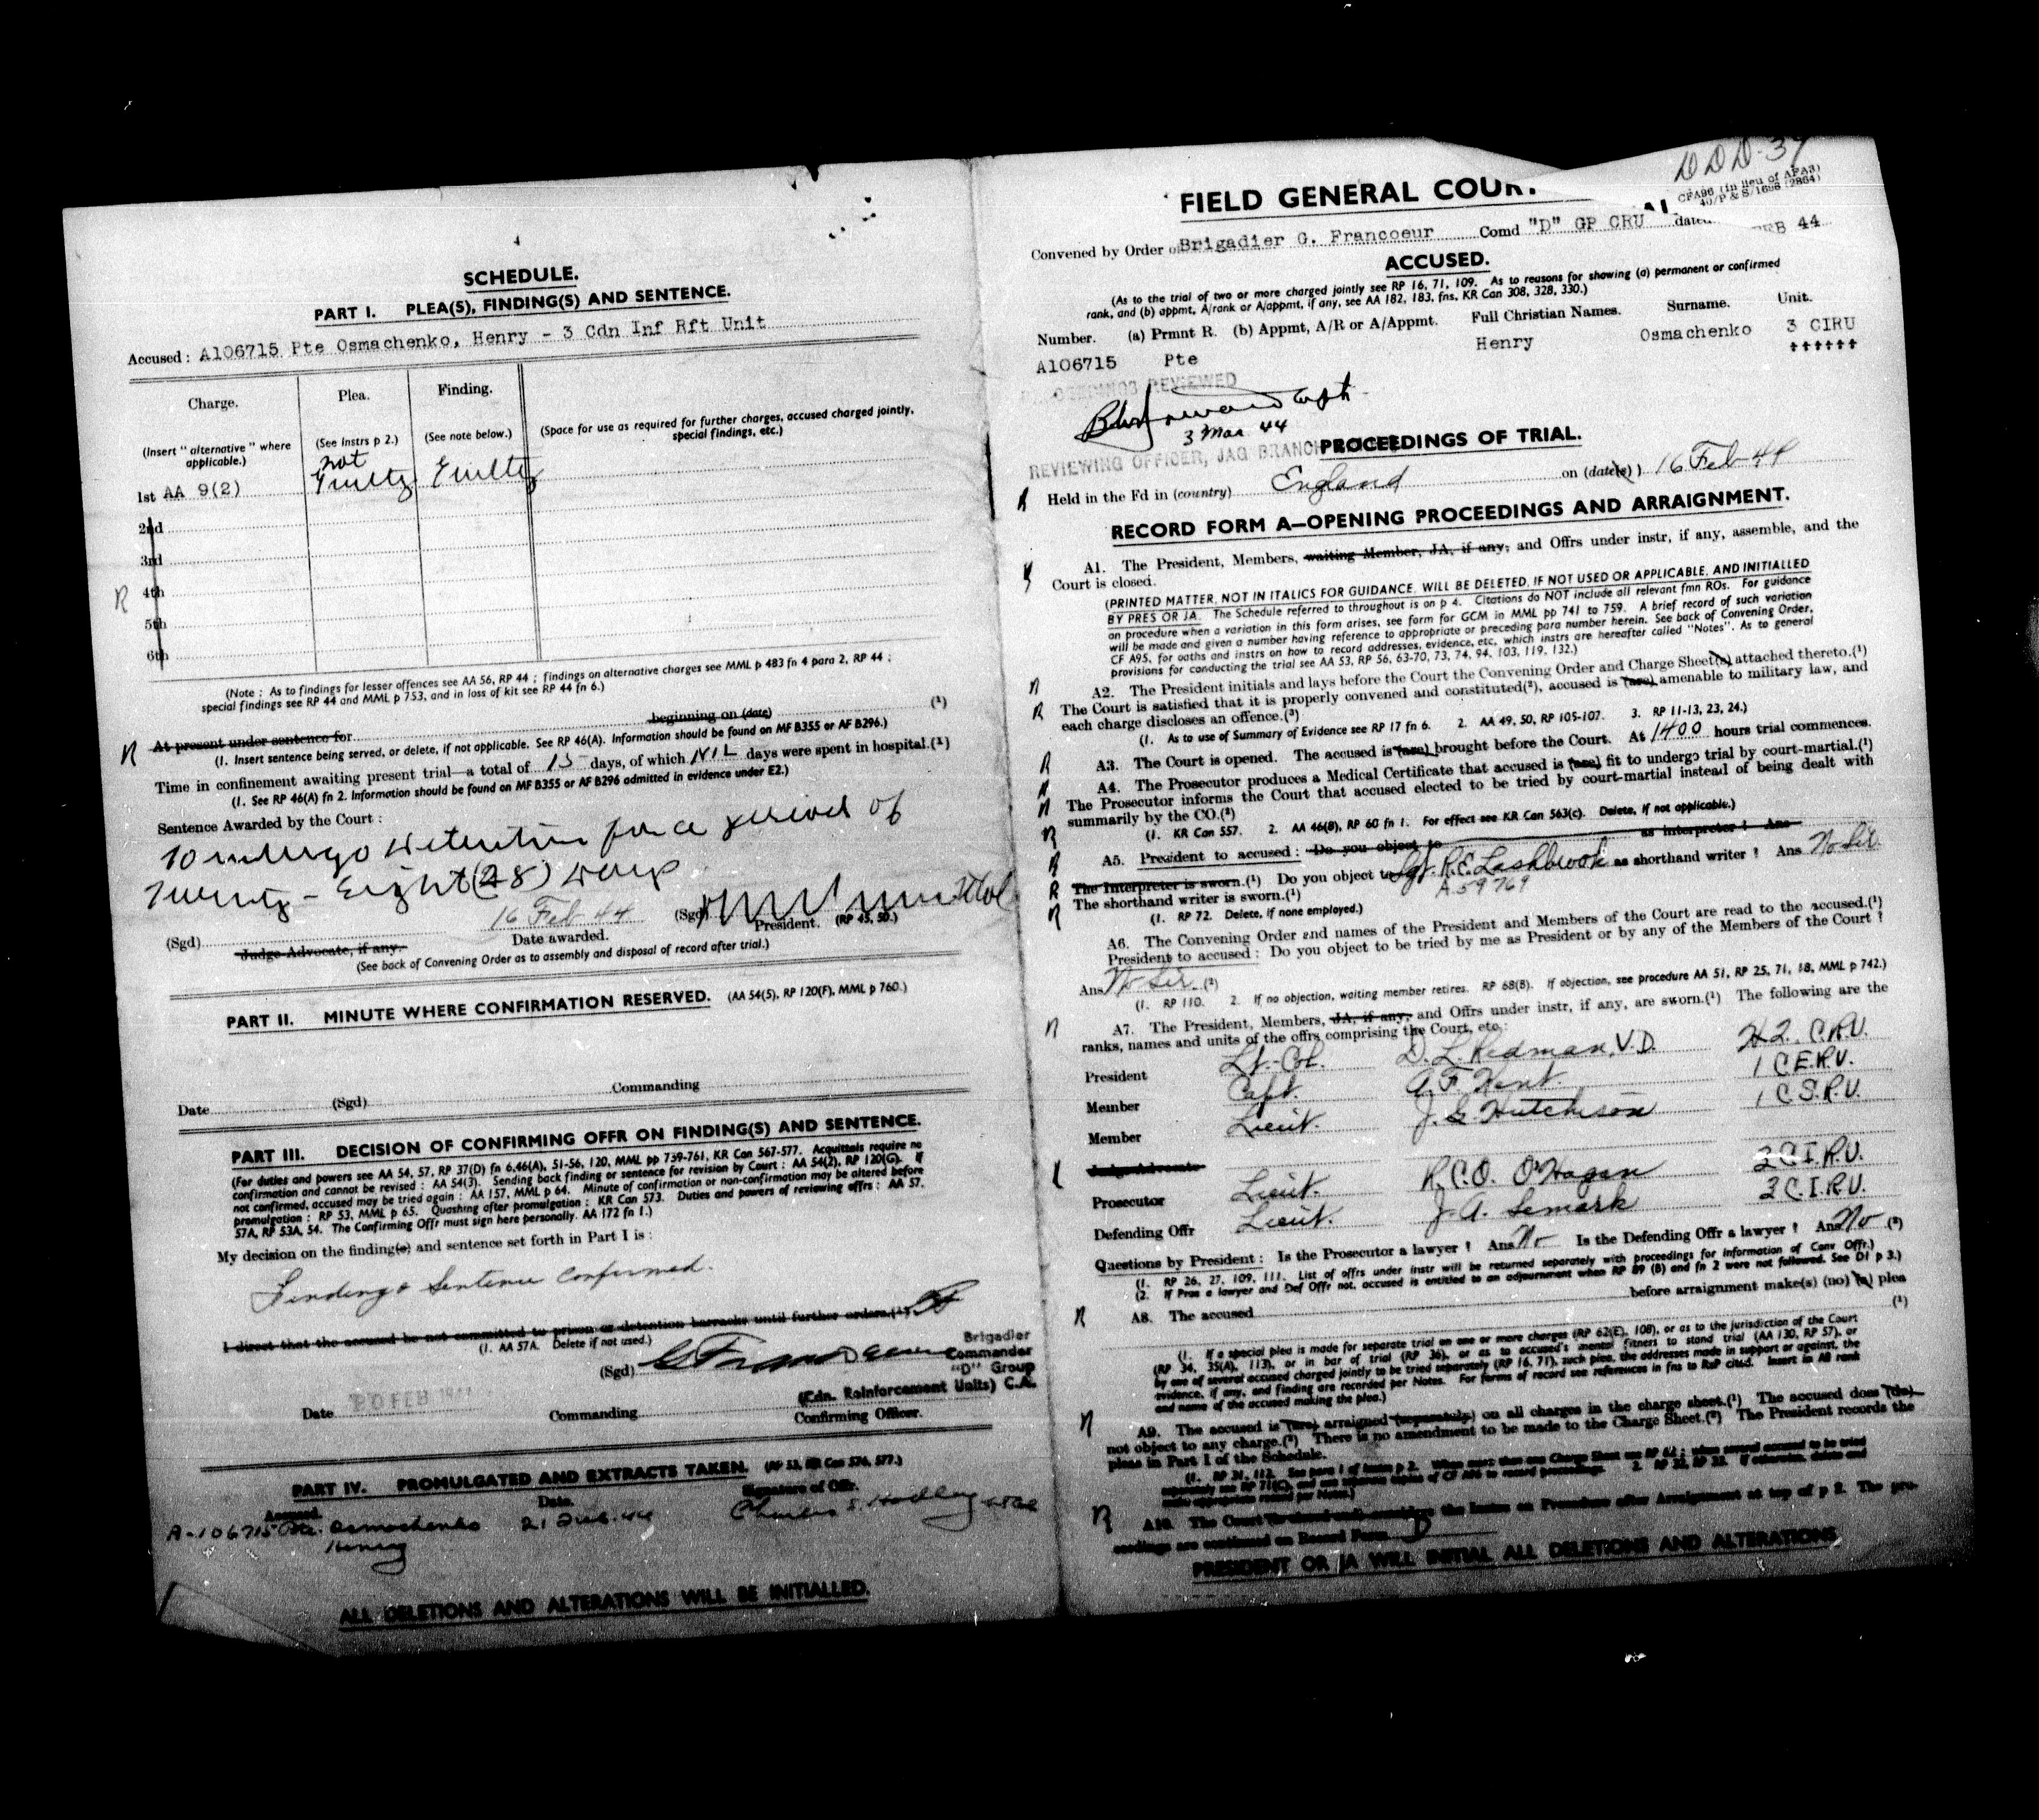 SCHEDULE.
PART I. PLEA(S), FINDING(S) AND SENTENCE.
Accused : A106715 Pte Osmachenko, Henry - 3 Cdn Inf Rft Unit
Charge.
Plea.
Finding.
(Insert " alternative " where applicable.)
(See Instrs p 2.)
(See note below.)
(Space for use as required for further charges, accused charged jointly, special findings, etc.)
1st AA 9(2)
not
Guilty
Guilty
2nd
3rd
4th
5th
6th
(Note : As to findings for lesser offences see AA 56, RP 44 ; findings on alternative charges see MML p 483 fn 4 para 2, RP 44 ;
special findings see RP 44 and MML p 753, and in loss of kit see RP 44 fn 6.)
At present under sentence for beginning on (date) (1)
(1. Insert sentence being served, or delete, if not applicable. See RP 46(A). Information should be found on MF B355 or AF B296.)
Time in confinement awaiting present trial—a total of 15 days, of which NIL days were spent in hospital.(1)
(1. See RP 46(A) fn 2. Information should be found on MF B355 or AF B296 admitted in evidence under E2.)
Sentence Awarded by the Court :
To undergo detention for a period of
Twenty - Eight (28) days
16 Feb 44
(Sgd)
(Sgd)
Date awarded.
President. (RP 45, 50.)
Judge Advocate, if any.
(See back of Convening Order as to assembly and disposal of record after trial.)
PART II. MINUTE WHERE CONFIRMATION RESERVED. (AA 54(5), RP 120(F), MML p 760.)
Date (Sgd) Commanding
PART III. DECISION OF CONFIRMING OFFR ON FINDING(S) AND SENTENCE.
(For duties and powers see AA 54, 57, RP 37(D) fn 6,46(A), 51-56, 120, MML pp 739-761, KR Can 567-577. Acquittals require no
confirmation and cannot be revised : AA 54(3). Sending back finding or sentence for revision by Court : AA 54(2), RP 120(G). If
not confirmed, accused may be tried again : AA 157, MML p 64. Minute of confirmation or non-confirmation may be altered before
promulgation : RP 53, MML p 65. Quashing after promulgation : KR Can 573. Duties and powers of reviewing offrs : AA 57,
57A, RP 53A, 54. The Confirming Offr must sign here personally. AA 172 fn 1.)
My decision on the finding(s) and sentence set forth in Part I is :
Finding & Sentence Confirmed.
I direct that the accused be not committed to prison or detention barracks until further orders.(1)
(1. AA 57A. Delete if not used.)
(Sgd)
Brigadier
Commander
"D" Group
(Cdn. Reinforcement Units) C.A.
Date 20 FEB 1944 Commanding Confirming Officer.
PART IV. PROMULGATED AND EXTRACTS TAKEN. (RP 53, KR Can 576, 577.)
Accused. Date. Signature of Offr.
A-106715 Pte. Osmachenko 21 Feb. 44
Henry
ALL DELETIONS AND ALTERATIONS WILL BE INITIALLED.
DDD-37
CFA96 (in lieu of AFA3)
40/P & S/1698 (2864)
FIELD GENERAL COUR
Convened by Order of Brigadier G. Francoeur Comd "D" GP CRU dated FEB 44
ACCUSED.
(As to the trial of two or more charged jointly see RP 16, 71, 109. As to reasons for showing (a) permanent or confirmed
rank, and (b) appmt, A/rank or A/appmt, if any, see AA 182, 183, fns, KR Can 308, 328, 330.)
Number. (a) Prmnt R. (b) Appmt, A/R or A/Appmt. Full Christian Names. Surname. Unit.
A106715 Pte Henry Osmachenko 3 CIRU
PROCEEDINGS REVIEWED
3 Mar 44
REVIEWING OFFICER, JAG BRANCH
PROCEEDINGS OF TRIAL.
Held in the Fd in (country) England on (date(s)) 16 Feb 44
RECORD FORM A—OPENING PROCEEDINGS AND ARRAIGNMENT.
A1. The President, Members, waiting Member, JA, if any, and Offrs under instr, if any, assemble, and the
Court is closed.
(PRINTED MATTER, NOT IN ITALICS FOR GUIDANCE, WILL BE DELETED, IF NOT USED OR APPLICABLE, AND INITIALLED
BY PRES OR JA. The Schedule referred to throughout is on p 4. Citations do NOT include all relevant fmn ROs. For guidance
on procedure when a variation in this form arises, see form for GCM in MML pp 741 to 759. A brief record of such variation
will be made and given a number having reference to appropriate or preceding para number herein. See back of Convening Order,
CF A95, for oaths and instrs on how to record addresses, evidence, etc, which instrs are hereafter called "Notes". As to general
provisions for conducting the trial see AA 53, RP 56, 63-70, 73, 74, 94, 103, 119, 132.)
A2. The President initials and lays before the Court the Convening Order and Charge Sheet(s) attached thereto.(1)
The Court is satisfied that it is properly convened and constituted(2), accused is (are) amenable to military law, and
each charge discloses an offence.(3)
(1. As to use of Summary of Evidence see RP 17 fn 6. 2. AA 49, 50, RP 105-107. 3. RP 11-13, 23, 24.)
A3. The Court is opened. The accused is (are) brought before the Court. At 1400 hours trial commences.
A4. The Prosecutor produces a Medical Certificate that accused is (are) fit to undergo trial by court-martial.(1)
The Prosecutor informs the Court that accused elected to be tried by court-martial instead of being dealt with
summarily by the CO.(2)
(1. KR Can 557. 2. AA 46(8), RP 60 fn 1. For effect see KR Can 563(c). Delete, if not applicable.)
A5. President to accused : Do you object to as interpreter ? Ans
The Interpreter is sworn.(1) Do you object to Sgt. R.E. Lashbrook as shorthand writer ? Ans No Sir.
A 59769
The shorthand writer is sworn.(1)
(1. RP 72. Delete, if none employed.)
A6. The Convening Order and names of the President and Members of the Court are read to the accused.(1)
President to accused : Do you object to be tried by me as President or by any of the Members of the Court ?
Ans No Sir. (2)
(1. RP 110. 2. If no objection, waiting member retires. RP 68(B). If objection, see procedure AA 51, RP 25, 71, 18, MML p 742.)
A7. The President, Members, JA, if any, and Offrs under instr, if any, are sworn.(1) The following are the
ranks, names and units of the offrs comprising the Court, etc :
President Lt-Col. D. L. Redman, V.D. #2. C.R.U.
Member Capt. A. F. Kent. 1 C.E.R.U.
Member Lieut. J. G. Hutchison 1 C.S.R.U.
Judge Advocate
Prosecutor Lieut. R.C.O. O'Hagan 3 C.I.R.U.
Defending Offr Lieut. J. A. Semark 3 C.I.R.U.
Questions by President : Is the Prosecutor a lawyer ? Ans No Is the Defending Offr a lawyer ? Ans No (2)
(1. RP 26, 27, 109, 111. List of offrs under instr will be returned separately with proceedings for information of Conv Offr.)
(2. If Pros a lawyer and Def Offr not, accused is entitled to an adjournment when RP 89 (B) and fn 2 were not followed. See D1 p 3.)
A8. The accused before arraignment make(s) (no) (a) plea
(1)
(1. If a special plea is made for separate trial on one or more charges (RP 62(E), 108), or as to the jurisdiction of the Court
(RP 34, 35(A), 113), or in bar of trial (RP 36), or as to accused's mental fitness to stand trial (AA 130, RP 57), or
by one of several accused charged jointly to be tried separately (RP 16, 71), such plea, the addresses made in support or against, the
evidence, if any, and finding are recorded per Notes. For forms of record see references in fns to RsP cited. Insert in A8 rank
and name of the accused making the plea.)
A9. The accused is (are) arraigned (separately) on all charges in the charge sheet.(1) The accused does (do)
not object to any charge.(2) There is no amendment to be made to the Charge Sheet.(2) The President records the
pleas in Part I of the Schedule.
A10. The Court the Instrs on Procedure after Arraignment at top of p 2. The pro-
ceedings are continued on Record Form D
PRESIDENT OR JA WILL INITIAL ALL DELETIONS AND ALTERATIONS